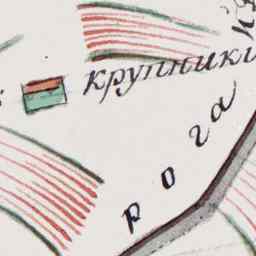 крупники
рога